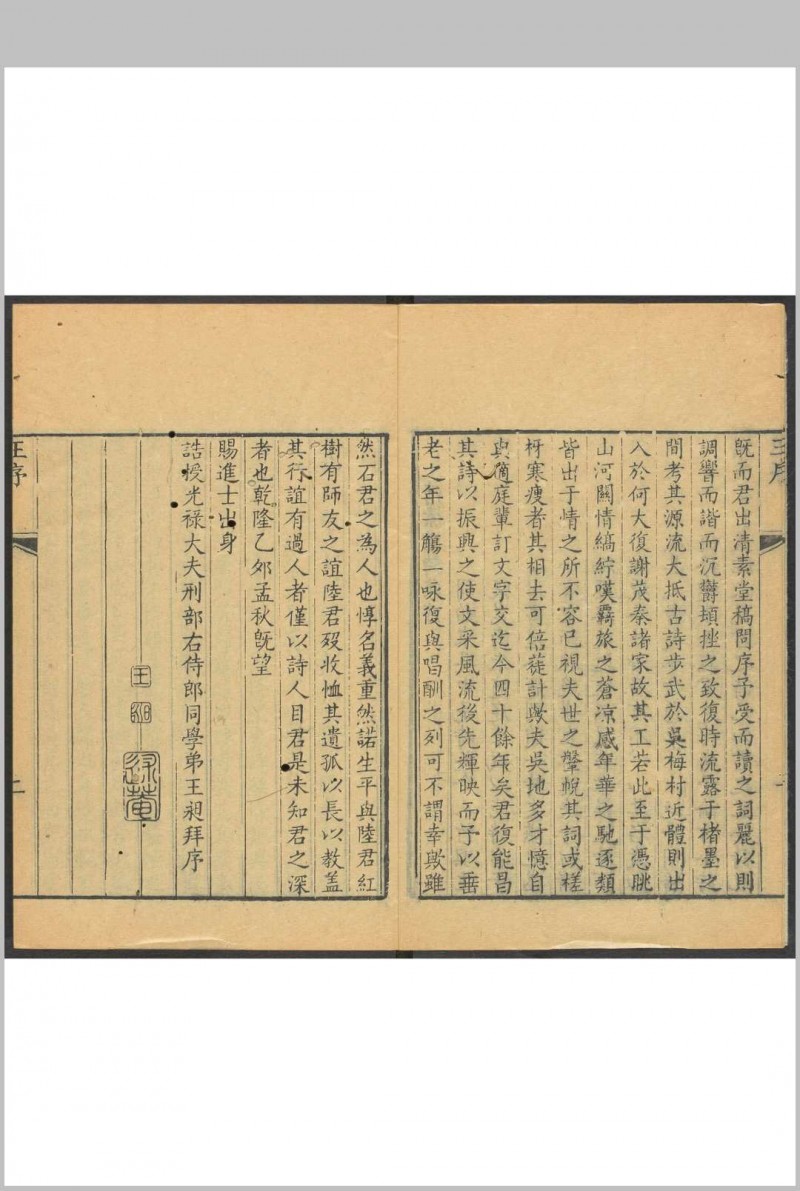 王序
既而君出清素堂稿問序予受而讀之詞麗以則
調響而諧而沉欝頓挫之致復時流露于楮墨之
間考其源流大抵古詩步武於吳梅村近體則出
入於何大復謝茂秦諸家故其工若此至于憑眺
山河關情縞紵嘆羇旅之蒼凉感年華之馳逐類
皆出于情之所不容已視夫世之鞶帨其詞或槎
枒寒瘦者其相去可倍蓰計歟夫吳地多才憶自
與適庭輩訂文字交迄今四十餘年矣君復能昌
其詩以振興之使文采風流後先輝映而予以垂
老之年一觴一咏復與唱酬之列可不謂幸歟雖
然石君之為人也惇名義重然諾生平與陸君紅
樹有師友之誼陸君歿收恤其遺孤以長以教盖
其行誼有過人者僅以詩人目君是未知君之深
者也乾隆乙夘孟秋既望
賜進士出身
誥授光禄大夫刑部右侍郎同學弟王昶拜序
王昶
述菴
王序
二